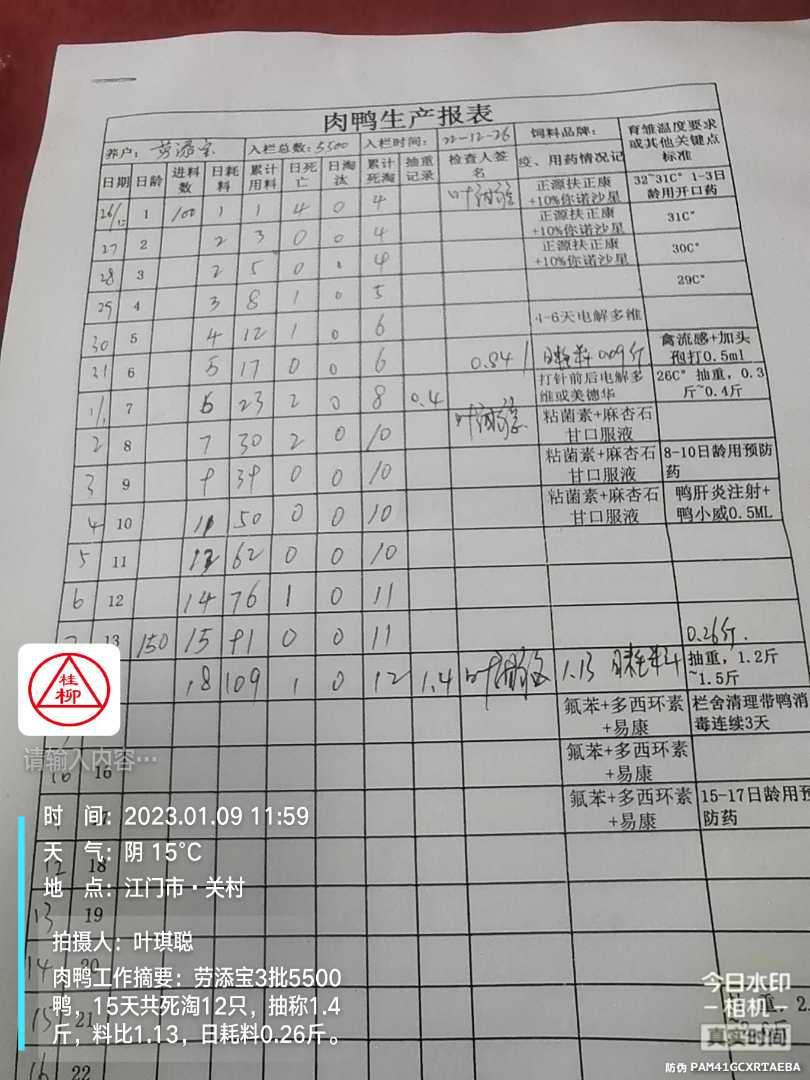 肉鸭生产报表
养户: 劳添宝 入栏总数: 5500 入栏时间: 22-12-26 饲料品牌: 育雏温度要求或其他关键点标准
日期 日龄 进料数 日耗料 累计用料 日死亡 日淘汰 累计死淘 抽重记录 检查人签名 疫、用药情况记
26/12 1 100 1 1 4 0 4 正源扶正康+10%你诺沙星 32~31C° 1-3日龄用开口药
27 2 2 3 0 0 4 正源扶正康+10%你诺沙星 31C°
28 3 2 5 0 0 4 正源扶正康+10%你诺沙星 30C°
29 4 3 8 1 0 5 29C°
30 5 4 12 1 0 6 4-6天电解多维
31 6 5 17 0 0 6 0.84 日耗料0.09斤 禽流感+加头孢打0.5ml
1/1 7 6 23 2 0 8 0.4 打针前后电解多维或美德华 26C° 抽重,0.3斤~0.4斤
2 8 7 30 2 0 10 粘菌素+麻杏石甘口服液
3 9 9 39 0 0 10 粘菌素+麻杏石甘口服液 8-10日龄用预防药
4 10 11 50 0 0 10 粘菌素+麻杏石甘口服液 鸭肝炎注射+鸭小威0.5ML
5 11 12 62 0 0 10
6 12 14 76 1 0 11
13 150 15 91 0 0 11 0.26斤.
18 109 1 0 12 1.4 1.13 日耗料 抽重,1.2斤~1.5斤
氟苯+多西环素+易康 栏舍清理带鸭消毒连续3天
16 氟苯+多西环素+易康
氟苯+多西环素+易康 15-17日龄用预防药
12 18
13 19
14 20
15 21 重,2.
16 22
桂柳
请输入内容···
时 间: 2023.01.09 11:59
天 气: 阴 15℃
地 点: 江门市·关村
拍摄人: 叶琪聪
肉鸭工作摘要: 劳添宝3批5500
鸭,15天共死淘12只,抽称1.4
斤,料比1.13,日耗料0.26斤。
今日水印
-相机-
真实时间
防伪 PAM41GCXRTAEBA